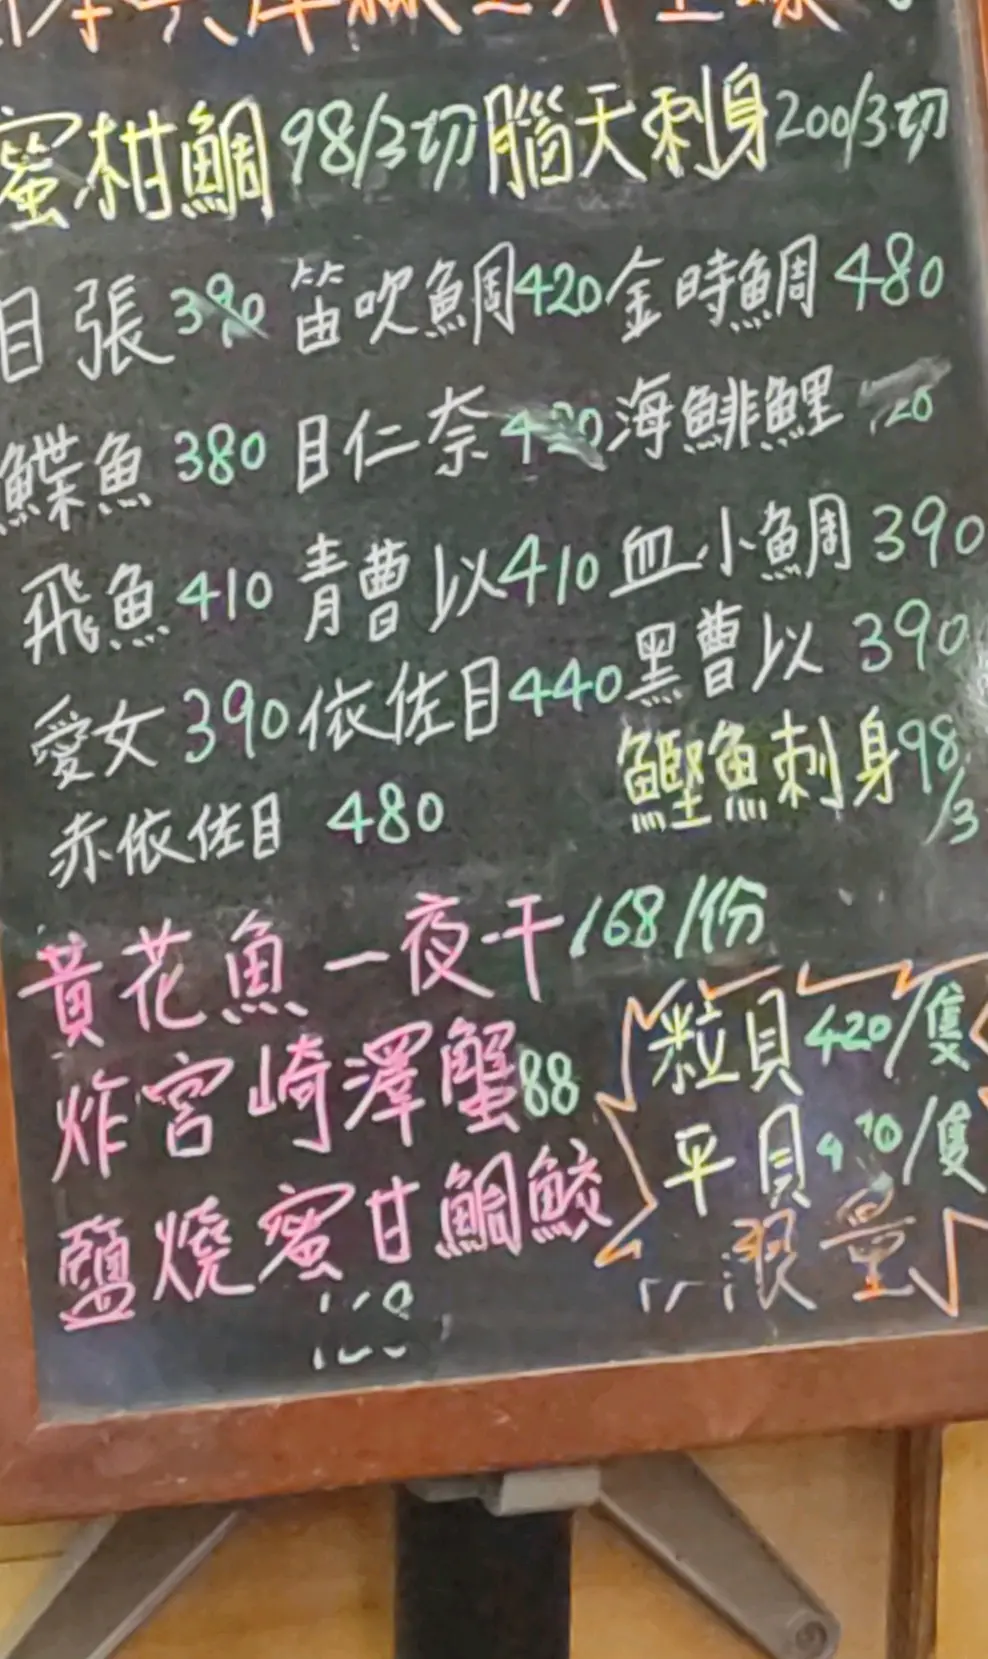 蜜柑鯛 98/3切 腦天刺身 200/3切
目張 390 笛吹鯛 420 金時鯛 480
鰈魚 380 目仁奈 420 海鯡鯉
飛魚 410 青曹以 410 血小鯛 390
愛女 390 依佐目 440 黑曹以 390
赤依佐目 480 鰹魚刺身 98/3
黃花魚一夜干 168/份
炸宮崎澤蟹 88
鹽燒蜜甘鯛鮫 168
粒貝 420/隻
平貝 /隻
限量